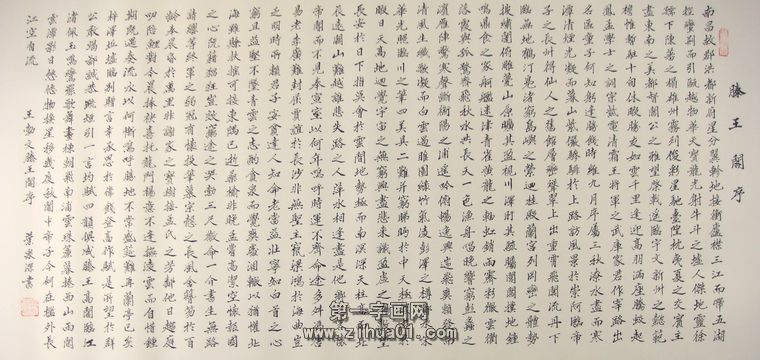 滕王閣序
南昌故郡洪都新府星分翼軫地接衡廬襟三江而帶五湖
控蠻荊而引甌越物華天寶龍光射牛斗之墟人傑地靈徐
孺下陳蕃之榻雄州霧列俊彩星馳臺隍枕夷夏之交賓主
盡東南之美都督閻公之雅望棨戟遙臨宇文新州之懿範
襜帷暫駐十旬休暇勝友如雲千里逢迎高朋滿座騰蛟起
鳳孟學士之詞宗紫電清霜王將軍之武庫家君作宰路出
名區童子何知躬逢勝餞時維九月序屬三秋潦水盡而寒
潭清煙光凝而暮山紫儼驂騑於上路訪風景於崇阿臨帝
子之長州得仙人之舊館層巒聳翠上出重霄飛閣流丹下
臨無地鶴汀鳧渚窮島嶼之縈迴桂殿蘭宮列岡巒之體勢
披繡闥俯雕甍山原曠其盈視川澤盱其駭矚閭閻撲地鐘
鳴鼎食之家舸艦迷津青雀黃龍之軸虹銷雨霽彩徹雲衢
落霞與孤鶩齊飛秋水共長天一色漁舟唱晚響窮彭蠡之
濱雁陣驚寒聲斷衡陽之浦遙吟俯暢逸興遄飛爽籟發而
清風生纖歌凝而白雲遏睢園綠竹氣凌彭澤之樽鄴水朱
華光照臨川之筆四美具二難并窮睇眄於中天極娛遊於
暇日天高地迥覺宇宙之無窮興盡悲來識盈虛之有數望
長安於日下指吳會於雲間地勢極而南溟深天柱高而北
辰遠關山難越誰悲失路之人萍水相逢盡是他鄉之客懷
帝閽而不見奉宣室以何年嗚呼時運不齊命途多舛馮唐易
老李廣難封屈賈誼於長沙非無聖主竄梁鴻於海曲豈
乏明時所賴君子安貧達人知命老當益壯寧知白首之心
窮且益堅不墜青雲之志酌貪泉而覺爽處涸轍以猶懽北
海雖賒扶搖可接東隅已逝桑榆非晚孟嘗高潔空懷報國
之心阮籍猖狂豈效窮途之哭勃三尺微命一介書生無路
請纓等終軍之弱冠有懷投筆慕宗愨之長風舍簪笏於百
齡奉晨昏於萬里非謝家之寶樹接孟氏之芳鄰他日趨庭
叨陪鯉對今晨捧袂喜托龍門楊意不逢撫凌雲而自惜鍾
期既遇奏流水以何慚嗚呼勝地不常盛筵難再蘭亭已矣
梓澤丘墟臨別贈言幸承恩於偉餞登高作賦是所望於群
公敢竭鄙誠恭疏短引一言均賦四韻俱成滕王高閣臨江
渚佩玉鳴鸞罷歌舞畫棟朝飛南浦雲珠簾暮捲西山雨閑
雲潭影日悠悠物換星移幾度秋閣中帝子今何在檻外長
江空自流
王勃文滕王閣序 葉泉深書
一字画网
www.zihua01.com